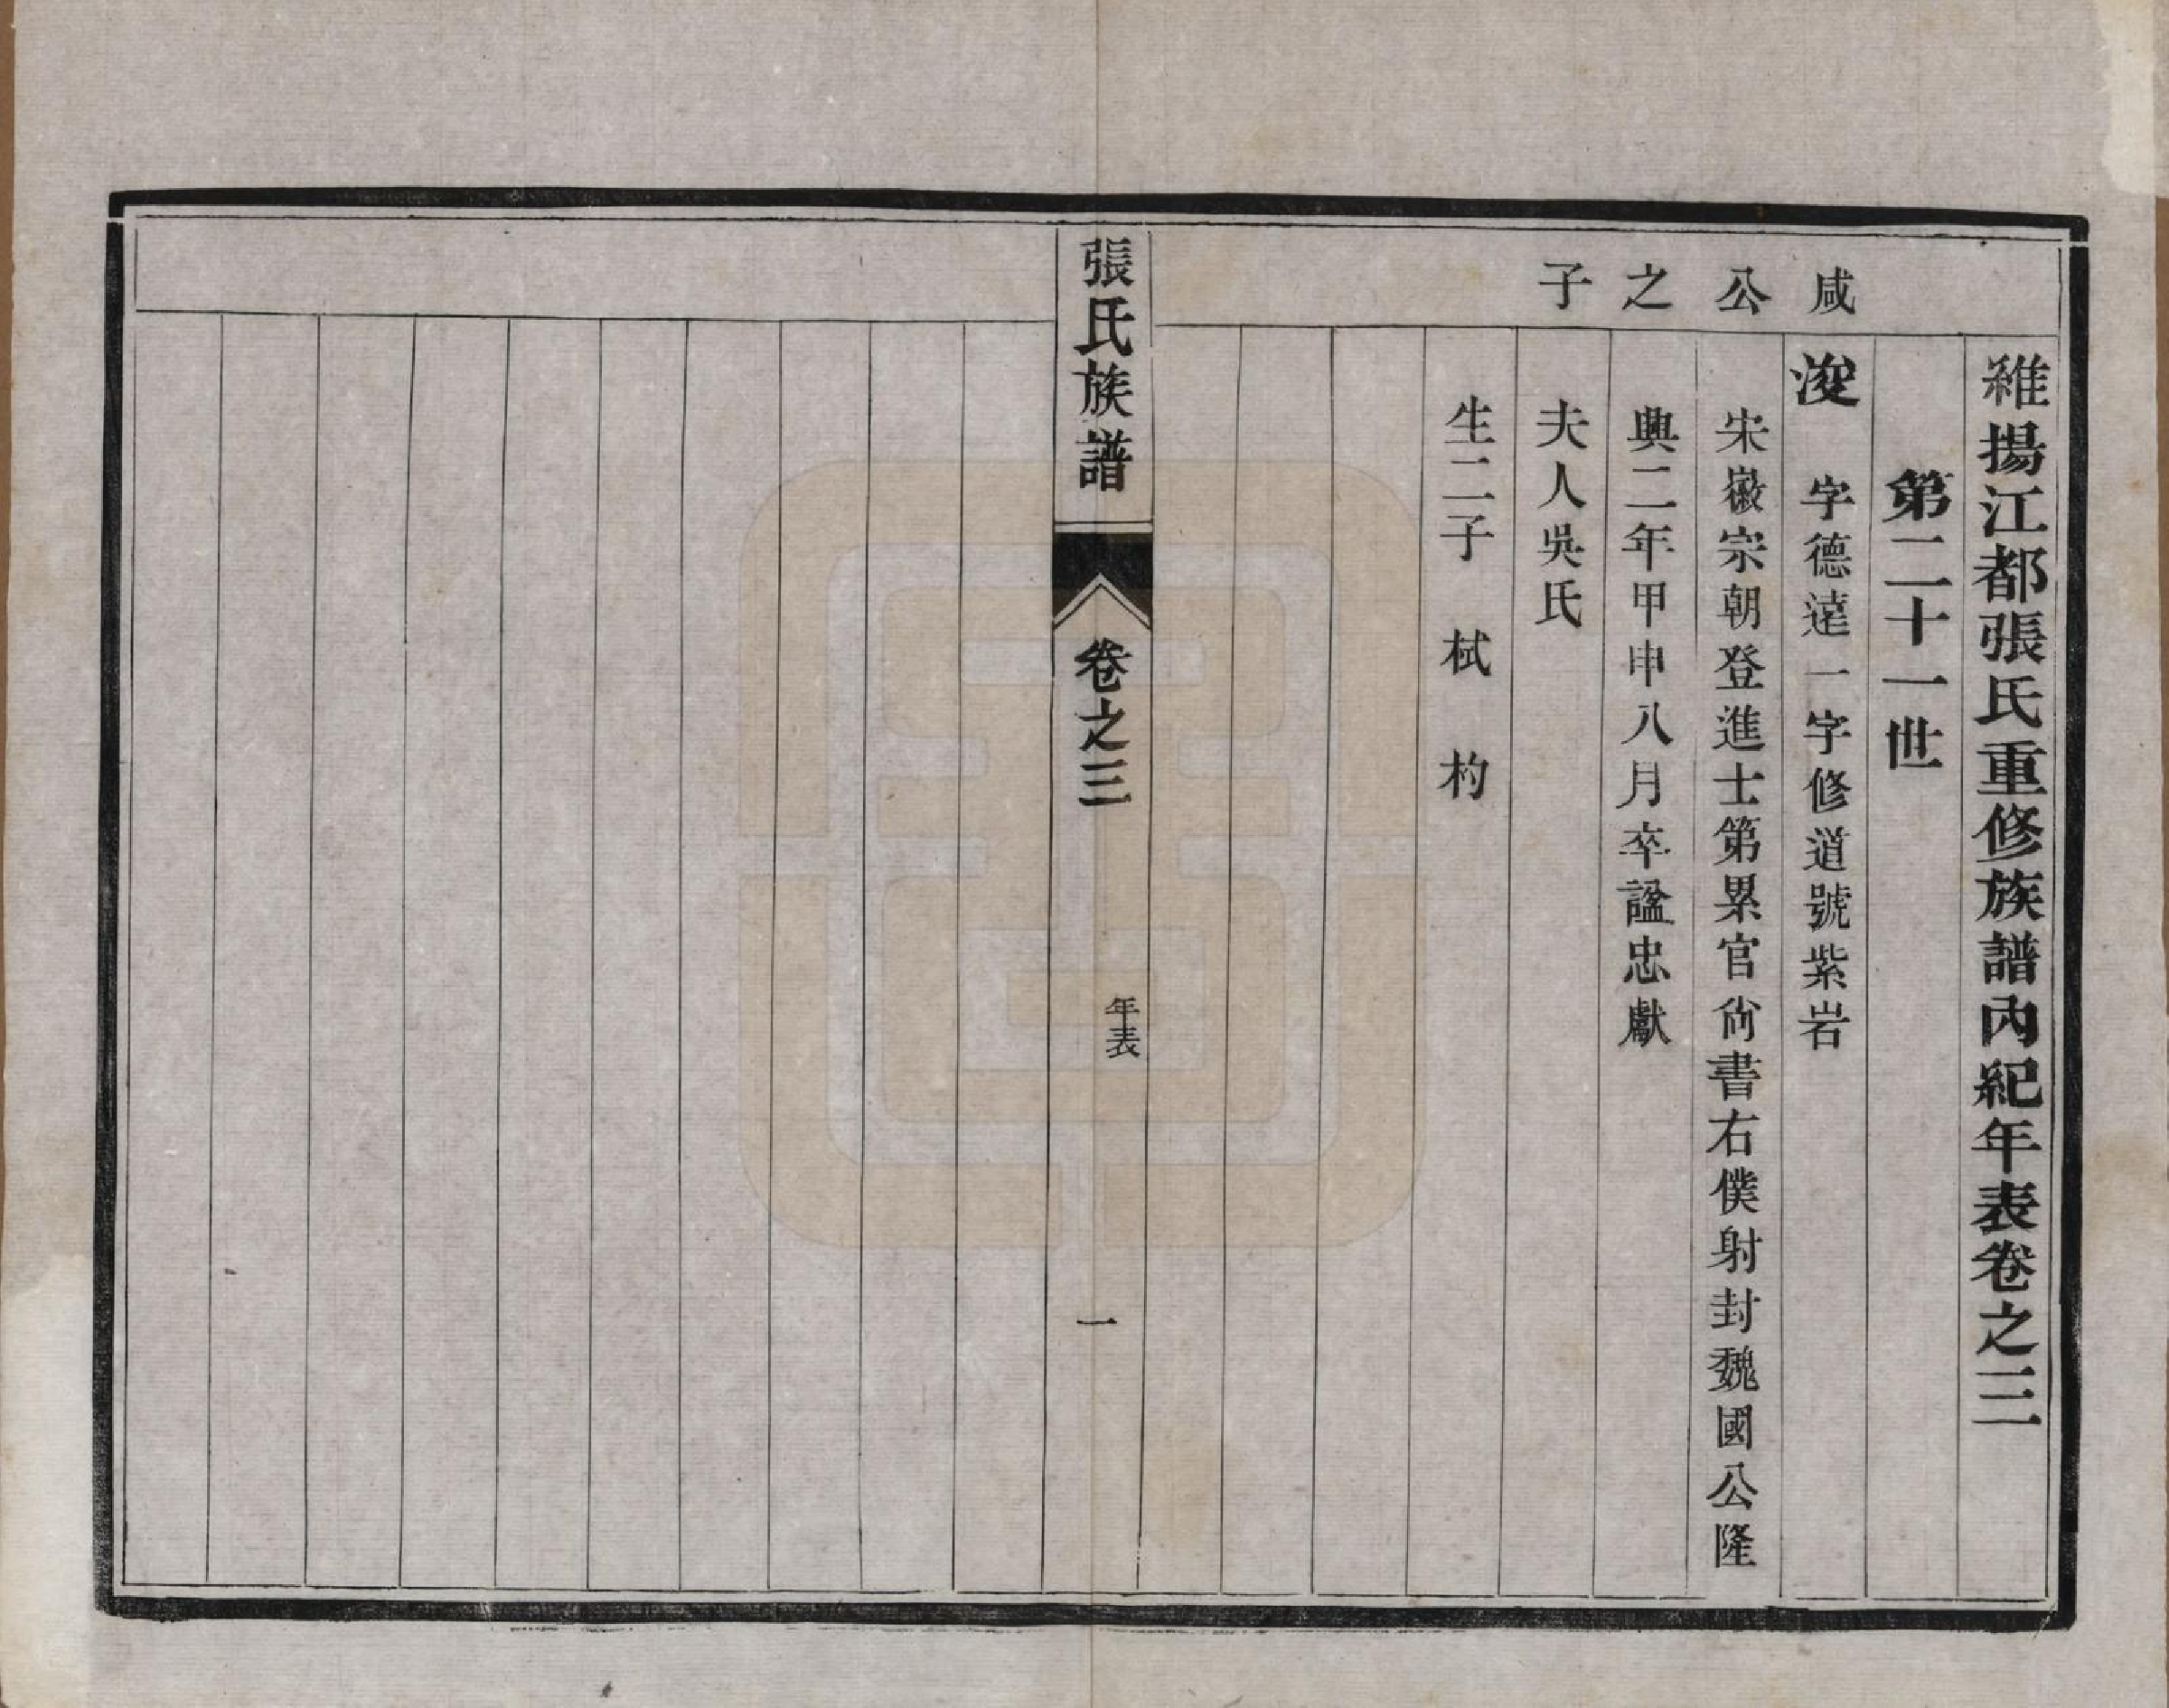 維揚江都張氏重修族譜內紀年表卷之三
第二十一世
咸公之子
浚 字德遠一字修道號紫岩
宋徽宗朝登進士第累官尙書右僕射封魏國公隆
興二年甲申八月卒謚忠獻
夫人吳氏
生二子 栻 杓
張氏族譜
卷之三
年表
一